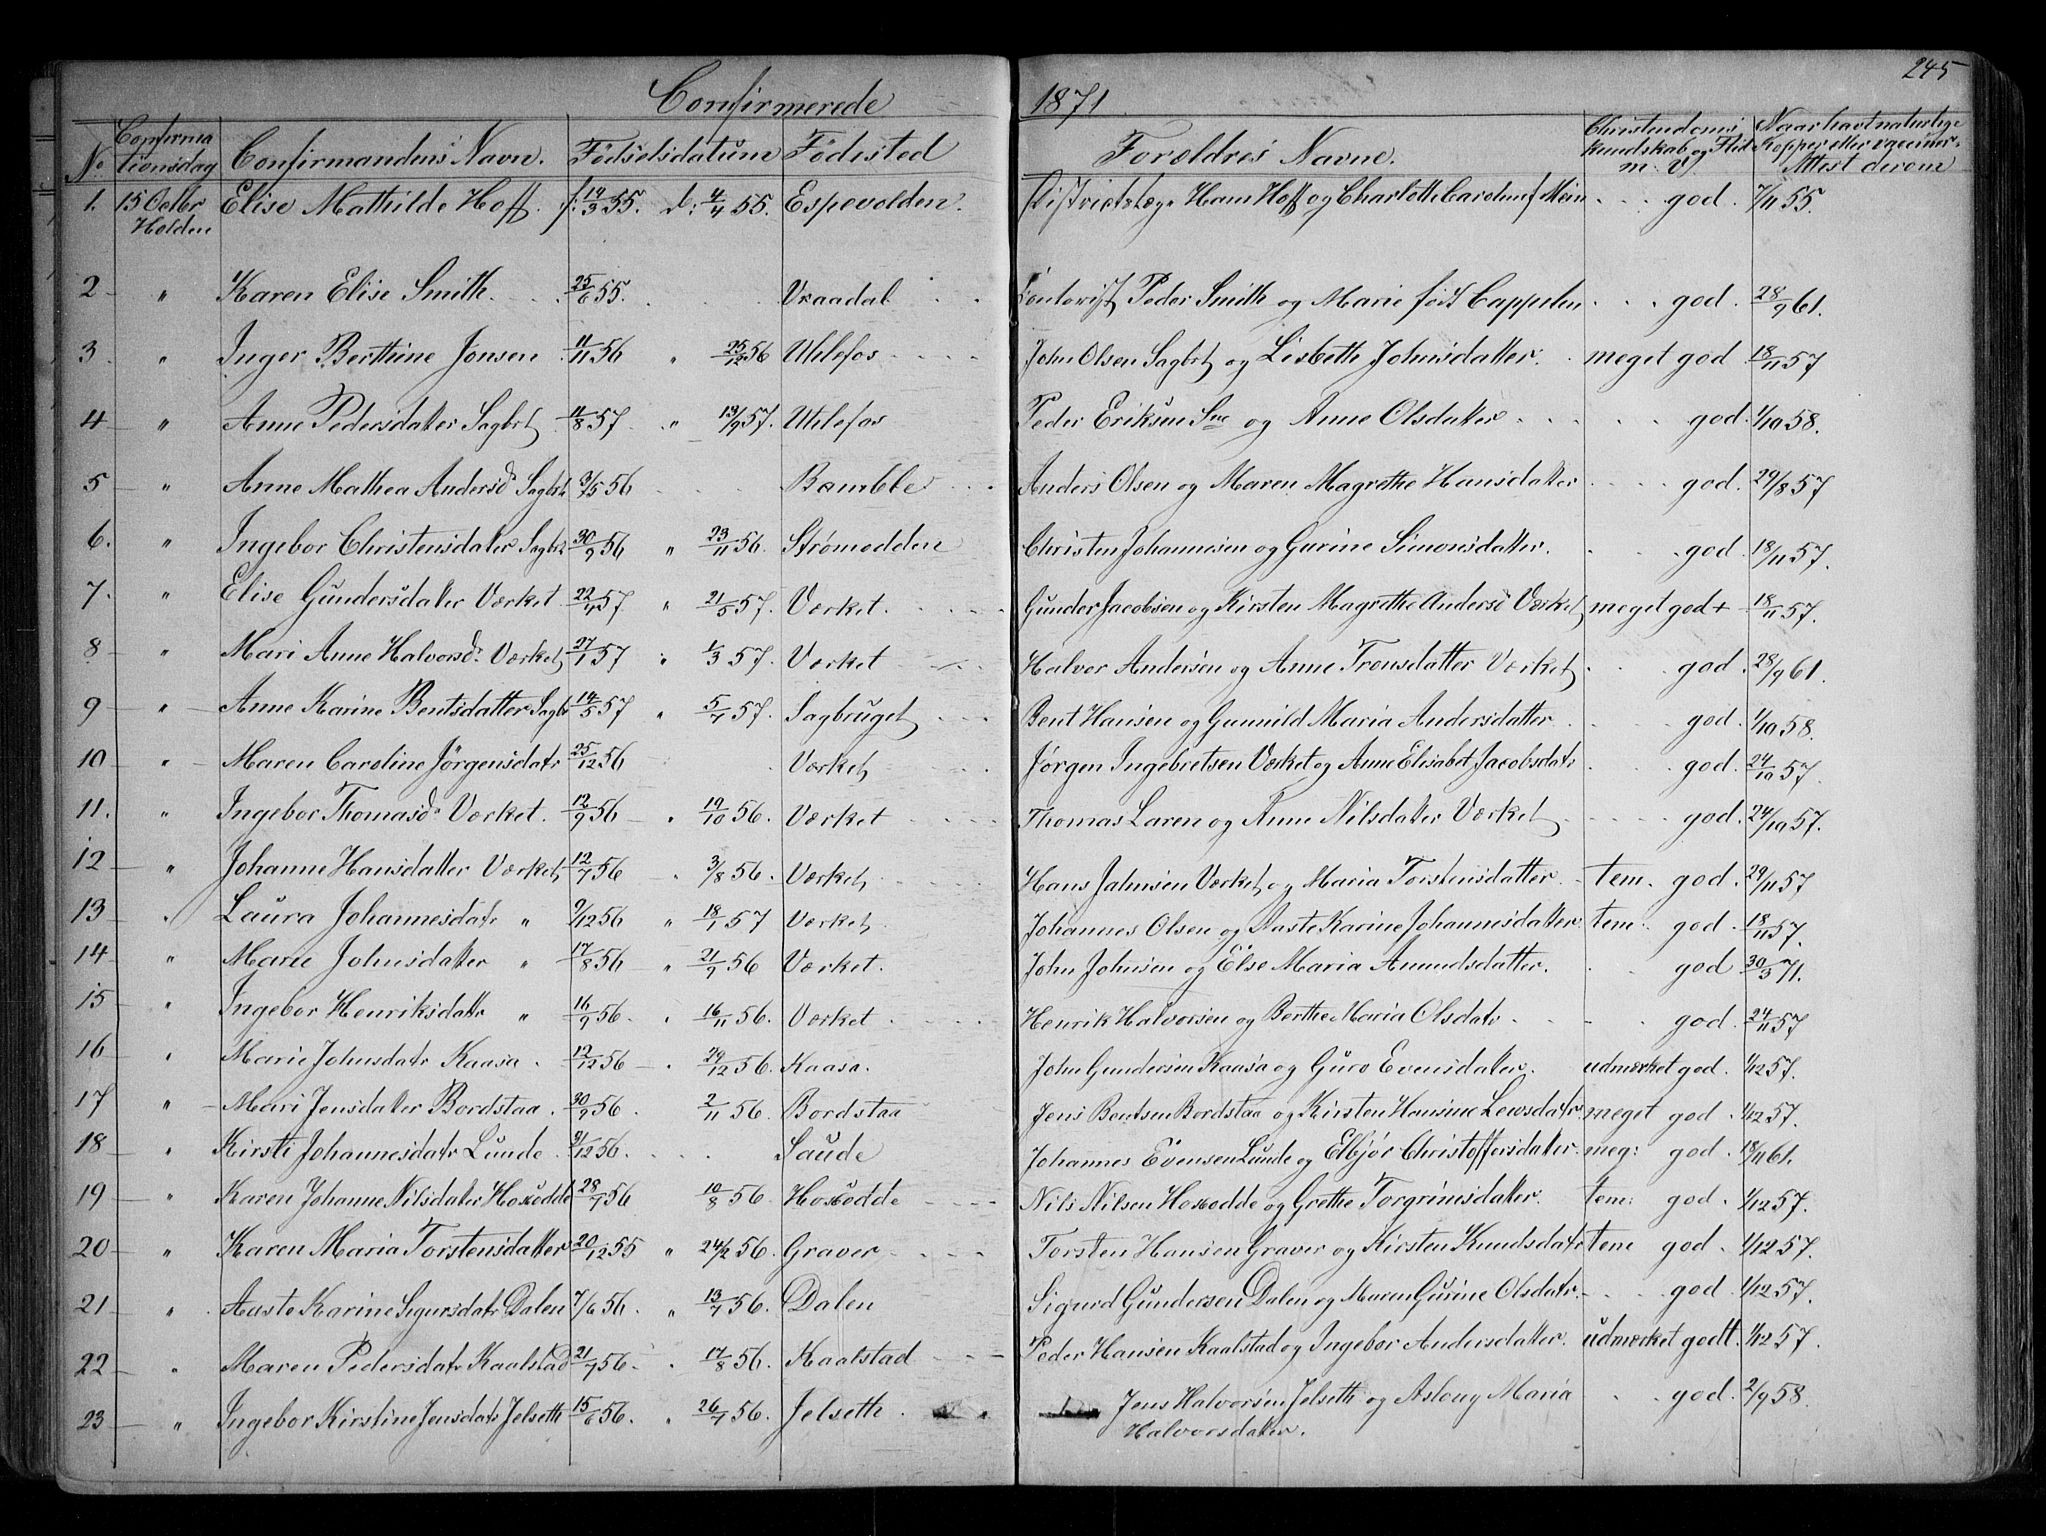 245
Confirmerede 1871.
No Confirmationsdag Confirmandens Navn. Fødselsdatum Fødested Forældres Navne. Christendoms kundskab og Flid m. V. Naar havt naturlige Kopper eller vaccineret. Attest derom
1. 15 Octbr Holden Elise Mathilde Hoff. f: 14/3 55. d: 4/4 55. Espevolden. Distrietslæge Hans Hoff og Charlotte Caroline f. god. 7/11 55.
2 " Karen Elise Smith. 25/6 55. Vraadal Peder Smith og Marie født Cappelen god. 28/9 61.
3. " Inger Berthine Jonsen 11/11 56 " 25/12 56 Uhlefos John Olsen Sagbrt og Lisbette Johnsdatter. meget god 18/11 57
4 " Anne Pedersdatter Sagbrt 11/8 57 " 13/9 57. Uhlefos Peder Eriksen og Anne Olsdatter god. 1/10 58.
5 " Anne Mathea Andersd Sagbrt 3/5 56 Bamble Anders Olsen og Maren Magrethe Hansdatter god. 29/8 57
6. " Ingebor Christensdater Sagbr 30/9 56 " 23/11 56. Strømodden Christen Johannesen og Gurine Simonsdatter. god. 18/11 57.
7. " Elise Gundersdater Værket 22/4 57 " 21/5 57. Værket. Gunder Jacobsen og Kirsten Magrethe Andersd Værket meget god + 18/11 57.
8 " Mari Anne Halvorsdr Værket 27/1 57 " 1/3 57. Værket Halvor Andersen og Anne Tronsdatter Værket god. 28/9 61.
9 " Anne Karine Bentsdatter Sagbr 14/5 57 " 5/7 57. Sagbruget Bent Hansen og Gunnild Maria Andersdatter god. 1/10 58.
10 " Maren Caroline Jørgensdatr 25/12 56 Værket Jørgen Ingebretsen Værket og Anne Elisabet Jacobsdatr god. 24/10 57.
11. " Ingebor Thomasd. Værket. 12/9 56 " 19/10 56. Værket Thomas Laren og Anne Nilsdater Værket god. 24/10 57.
12 " Johanne Hansdatter Værket 12/7 56 " 3/8 56. Værket Hans Jahnsen Værket og Maria Torstensdatter tem. god. 29/11 57
13 " Laura Johannesdatr " 9/12 56 " 18/1 57 Værket Johannes Olsen og Aaste Karine Johannesdatter tem: god. 18/11 57.
14 " Marie Johnsdatter " 17/8 56 " 21/9 56 Værket. John Johnsen og Else Maria Amundsdatter. god 30/3 71.
15 " Ingebor Henriksdatr " 16/9 56. " 16/11 56. Værket Henrik Halvorsen og Berthe Maria Olsdatr god. 24/11 57
16 " Marie Johnsdatr Kaasa. 12/12 56 " 29/12 56. Kaasa. John Gundersen Kaasa og Guro Evensdater. udmærket god. 1/12 57.
17 " Mari Jensdater Bordstaa. 30/9 56. 2/11 56. Bordstaa Jens Bentsen Bordstaa og Kirsten Hansine Lewsdatr. meget god. 1/12 57.
18 " Kirsti Johannesdatr Lunde. 31/12 56. Saude Johannes Evensen Lunde og Elbjør Christoffersdater. meg: god. 18/11 61.
19 " Karen Johanne Nilsdater Hoxodde 28/7 56 10/8 56. Hoxodde Nils Nilsen Hoxodde og Grethe Torgrimsdatter. tem: god. 1/12 57.
20 " Karen Maria Torstensdatter 20/12 55 " 24/2 56. Graver Torsten Hansen Graver og Kirsten Knudsdatr tem god. 1/12 57.
21 " Aaste Karine Sigursdatr Dalen 7/6 56. " 13/7 56. Dalen Sigurd Gundersen Dalen og Maren Gurine Olsdatr. god. 1/12 57.
22 " Maren Pedersdatr Kaalstad 21/7 56. " 17/8 56. Kaalstad Peder Hansen Kaalstad og Ingebor Andersdatter. udmærket godt. 1/12 57.
23 " Ingebor Kirstine Jensdatr Jelseth 15/6 56. " 26/7 56. Jelseth. Jens Halvorsen Jelseth og Asloug Maria Halvorsdater. god. 2/9 58.